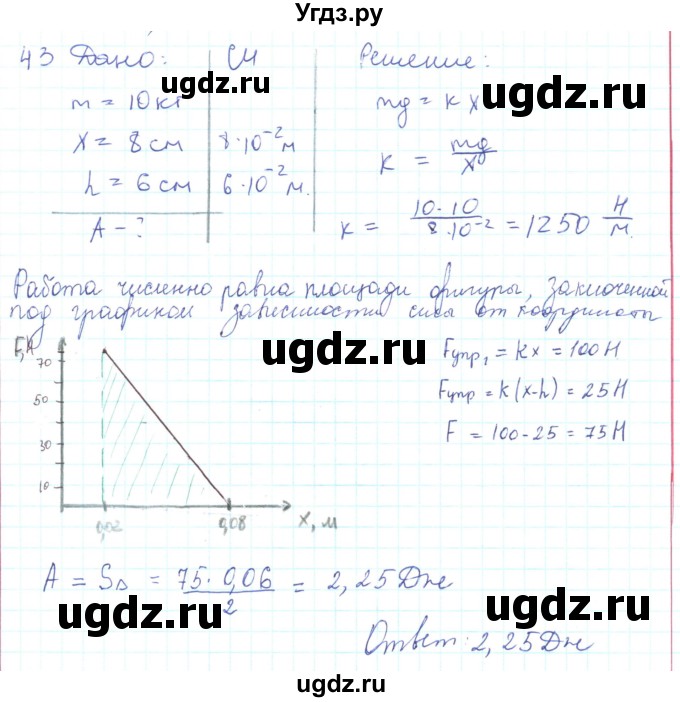 Угдз.ру
43 Дано: СИ Решение:
m = 10 кг mg = kx
x = 8 см 8·10⁻² м k = mg/x
h = 6 см 6·10⁻² м.
A - ? k = 10·10/8·10⁻² = 1250 Н/м.
Работа численно равна площади фигуры, заключенной
под графиком зависимости силы от координаты
F,Н
70
50
30
10
0,02 0,08 x, м
Fупр₁ = kx = 100 Н
Fупр = k(x-h) = 25 Н
F = 100-25 = 75 Н
A = S∆ = 75·0,06/2 = 2,25 Дж
Ответ: 2,25 Дж
ugdz.ru
ugdz.ru
ugdz.ru
ugdz.ru
ugdz.ru
ugdz.ru
ugdz.ru
ugdz.ru
ugdz.ru
ugdz.ru